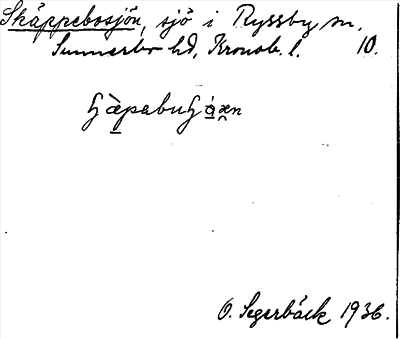 Skäppebosjön, sjö i Ryssby sn,
Sunnerbo hd, Kronob. l. 10.
O. Segerbäck 1936.